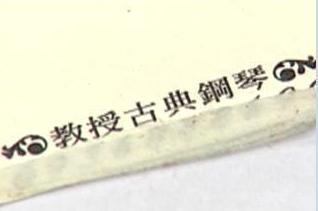 教授古典鋼琴